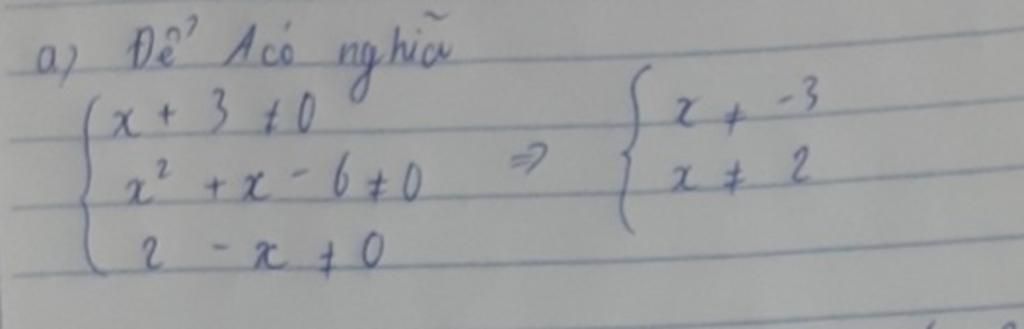 a) Để A có nghĩa
{ x + 3 ≠ 0
x² + x - 6 ≠ 0 ⇒ { x ≠ -3
2 - x ≠ 0 x ≠ 2